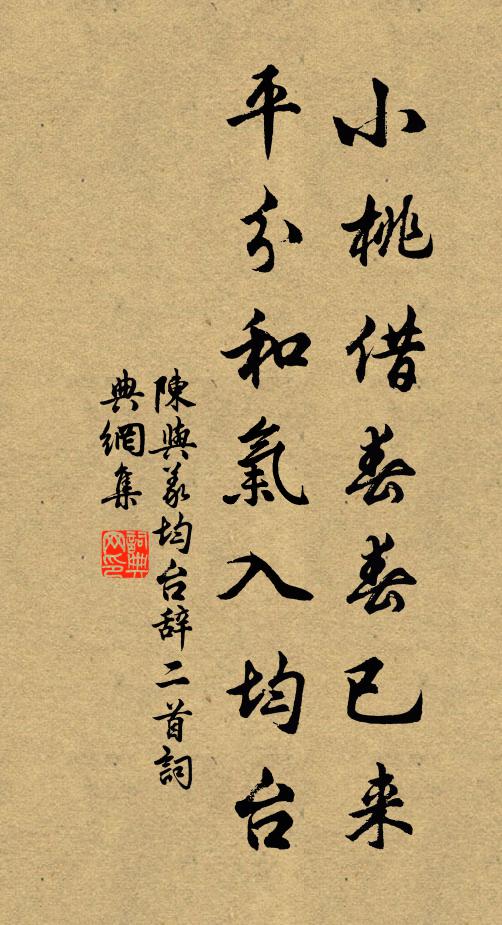 小桃借春春已来
平分和氣入均台
陳與義均台辞二首詞
典網集
詞典网印